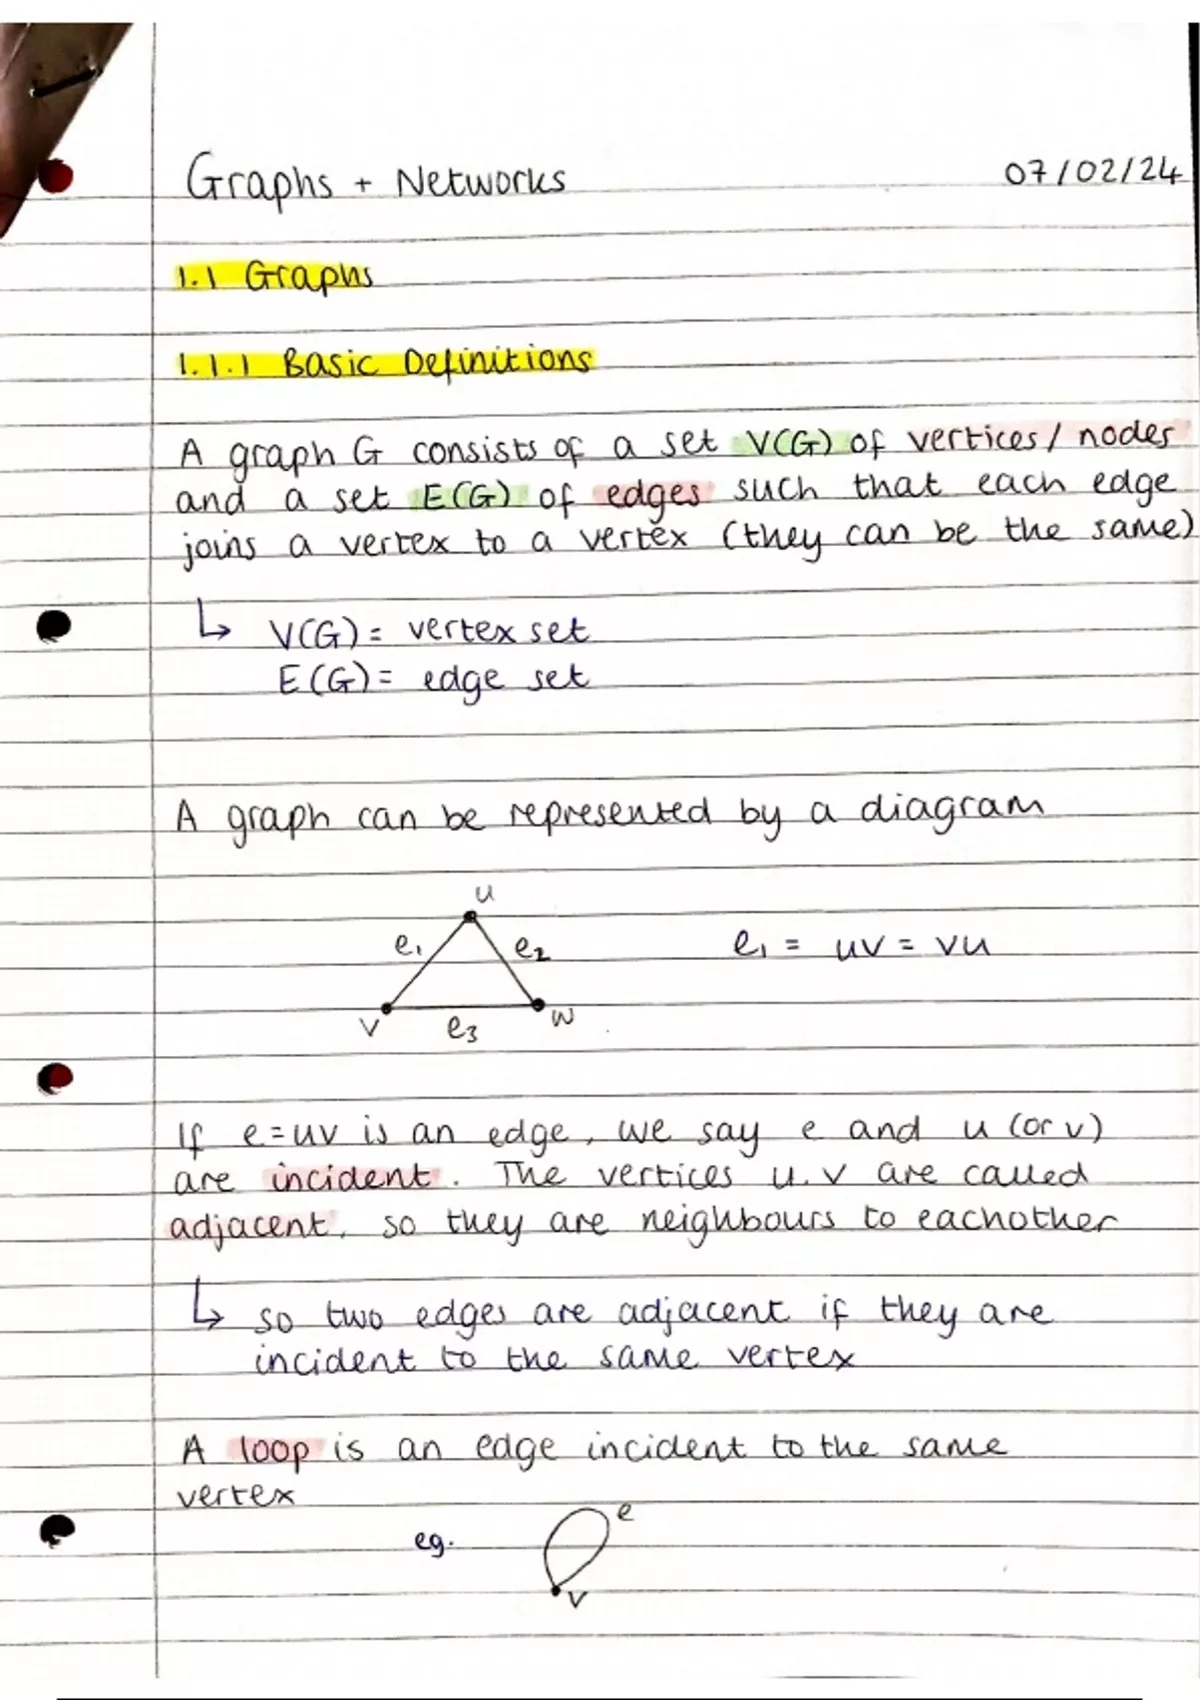 Graphs + Networks 07/02/24
1.1 Graphs
1.1.1 Basic Definitions
A graph G consists of a set V(G) of vertices / nodes
and a set E(G) of edges such that each edge
joins a vertex to a vertex (they can be the same)
↳ V(G) = vertex set
E(G) = edge set
A graph can be represented by a diagram
u
e₁ e₂ e₁ = uv = vu
v e₃ w
If e=uv is an edge, we say e and u (or v)
are incident. The vertices u, v are called
adjacent, so they are neighbours to eachother
↳ so two edges are adjacent if they are
incident to the same vertex
A loop is an edge incident to the same
vertex
e
eg.
v